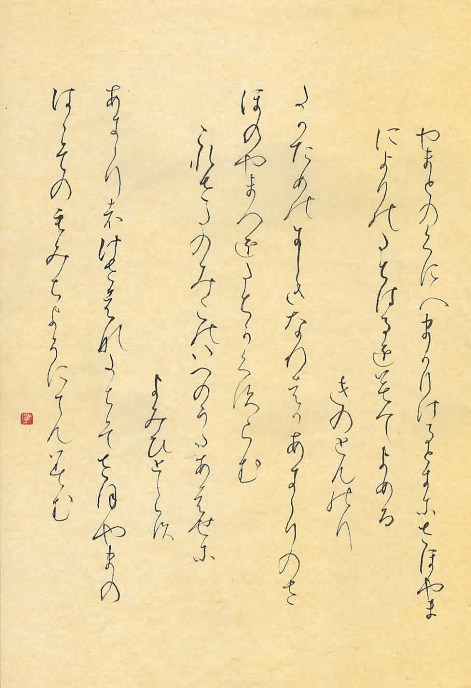 やまとのくにへまかりけるときにさほやま
にきりのたてりけるをみてよめる
きのとものり
たかためのにしきなれはかあきりのさ
ほのやまへをたちかくすらむ
これさたのみこのいへのうたあはせに
よみひとしらす
あきりはけさはなたちそさほやまの
はゝそのもみちよそにてもみむ